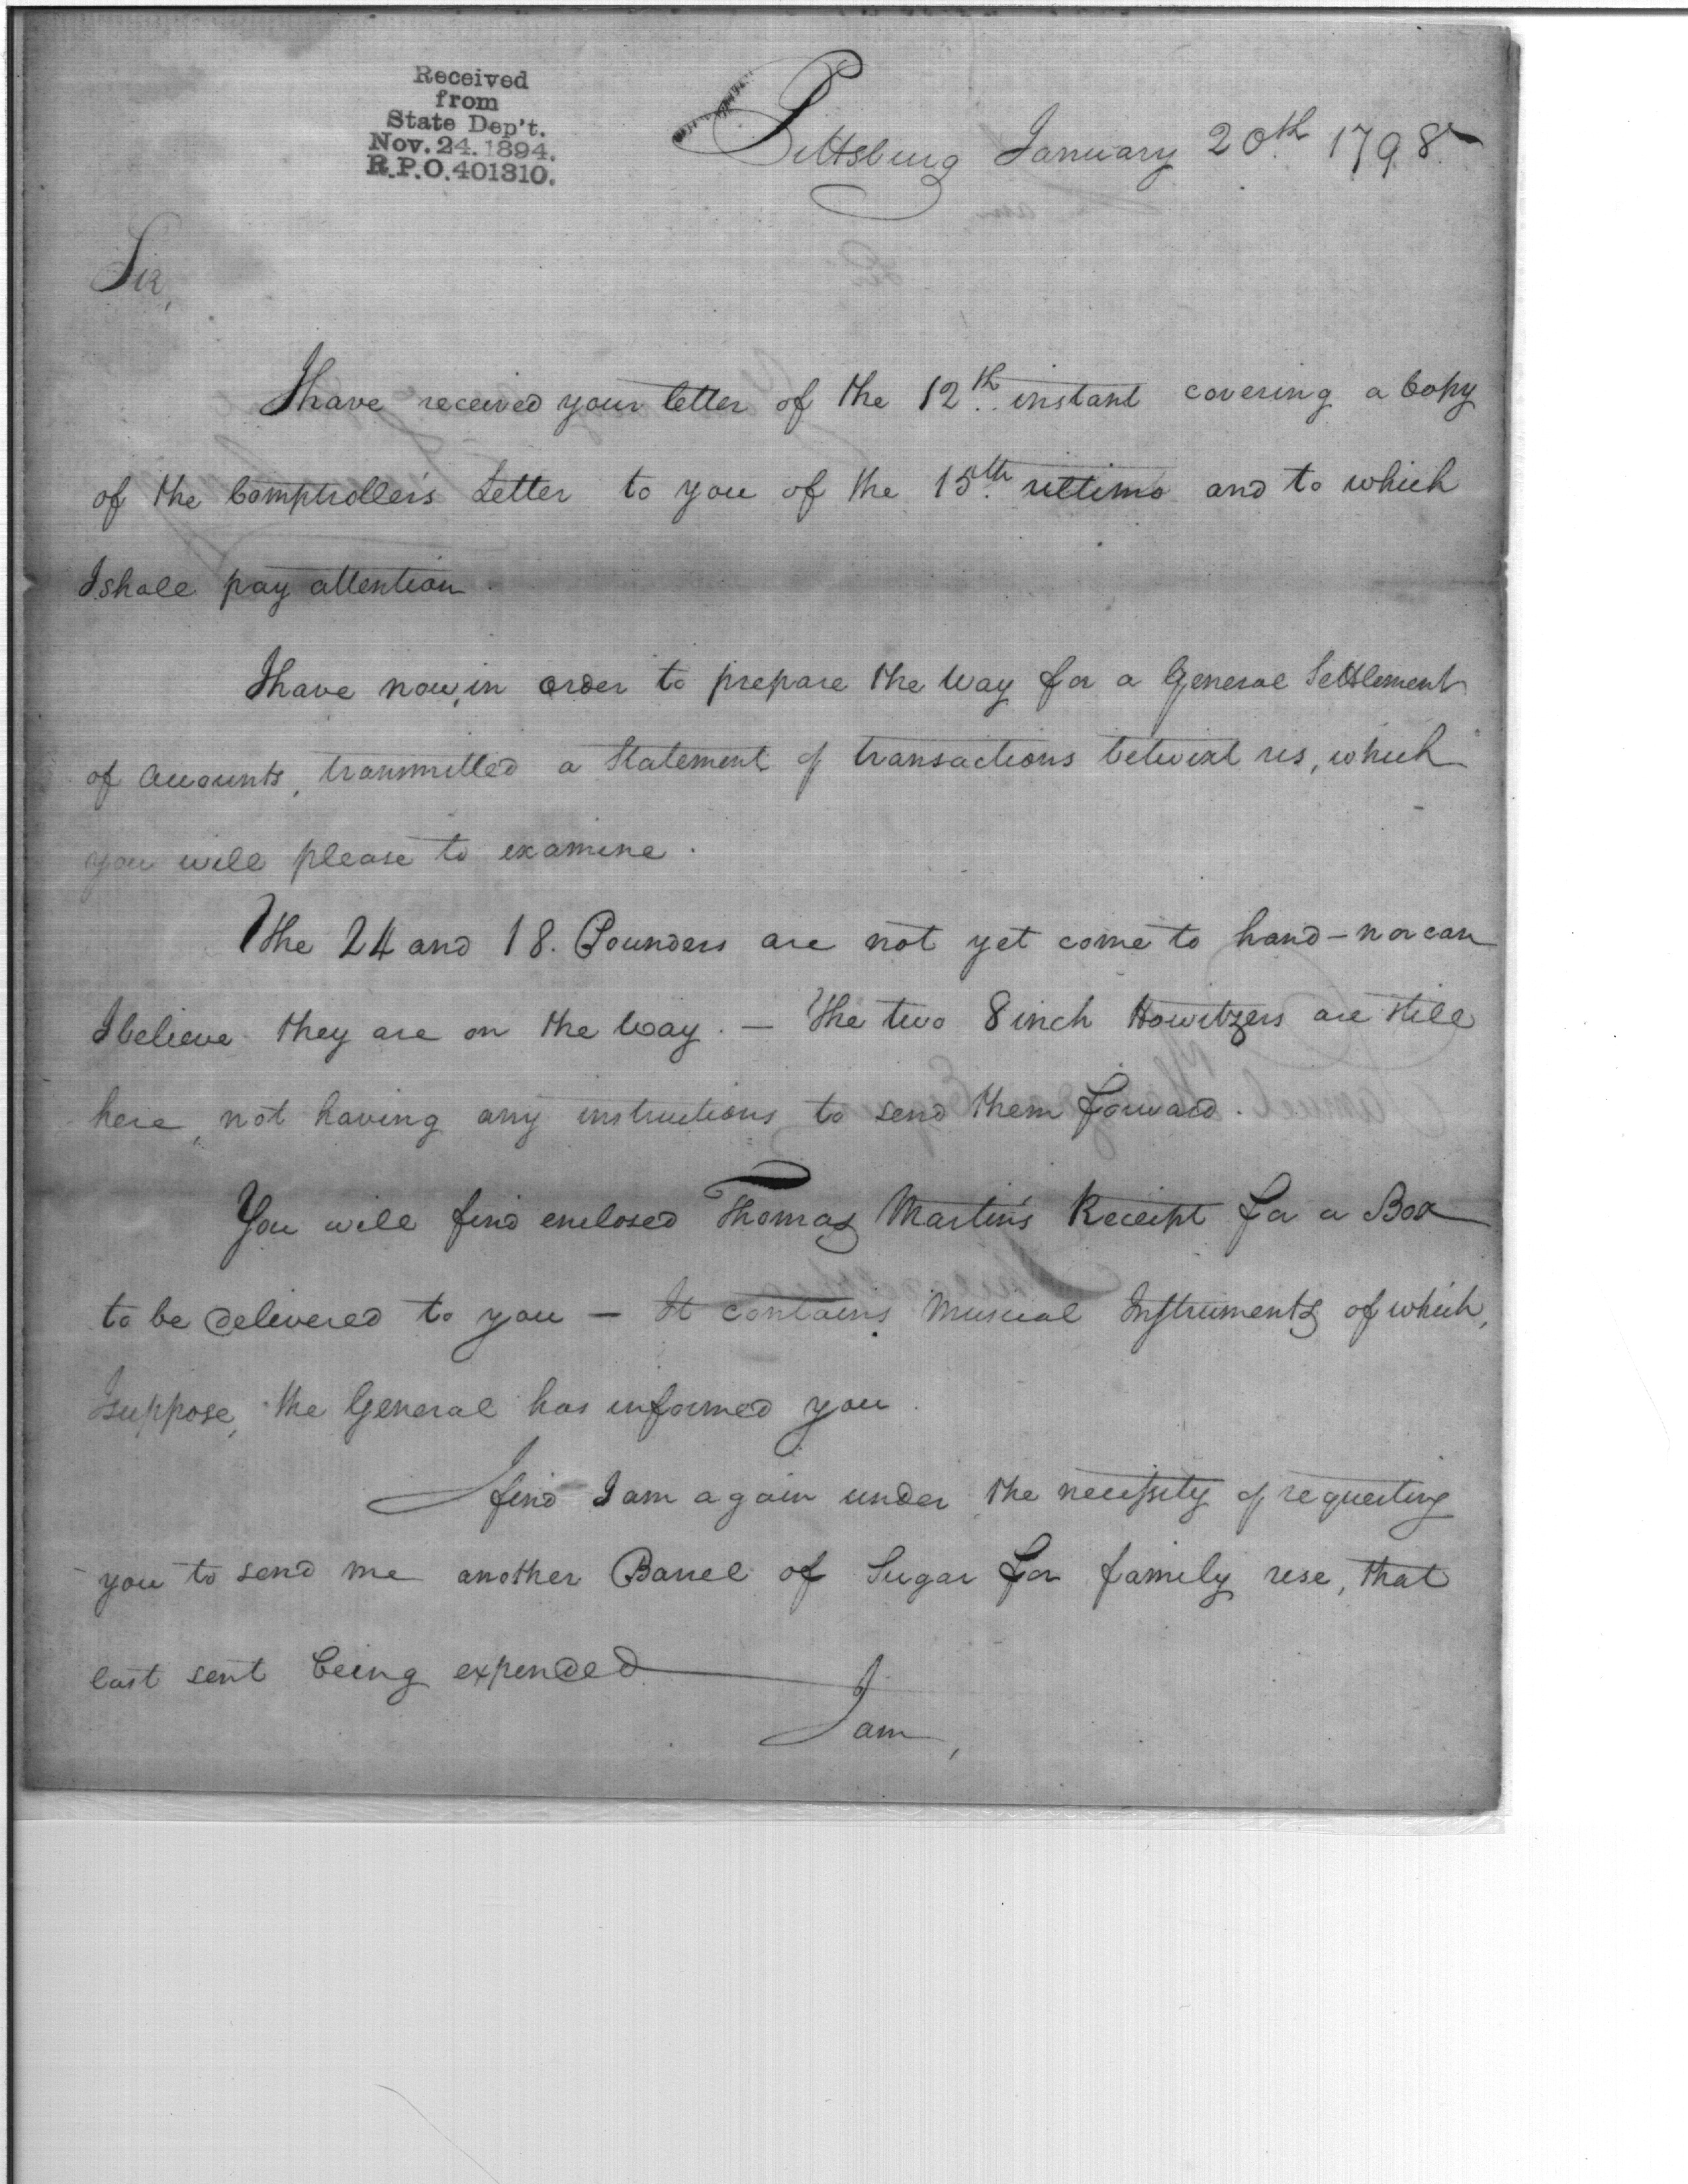 Received
from
State Dep't.
Nov. 24. 1894.
R.P.O. 401310.
Pittsburg January 20th 1798
Sir,
I have received your letter of the 12th instant covering a Copy
of the Comptroller's Letter to you of the 15th ultimo and to which
I shall pay attention.
I have now, in order to prepare the way for a General Settlement
of Accounts, transmitted a Statement of transactions betwixt us, which
you will please to examine.
The 24 and 18. Pounders are not yet come to hand – nor can
I believe they are on the way. – The two 8 inch Howitzers are still
here, not having any instructions to send them forward.
You will find enclosed Thomas Martin's Receipt for a Box
to be delivered to you – It contains Musical Instruments of which,
I suppose, the General has informed you.
I find I am again under the necessity of requesting
you to send me another Barrel of Sugar for family use, that
last sent being expended
I am,